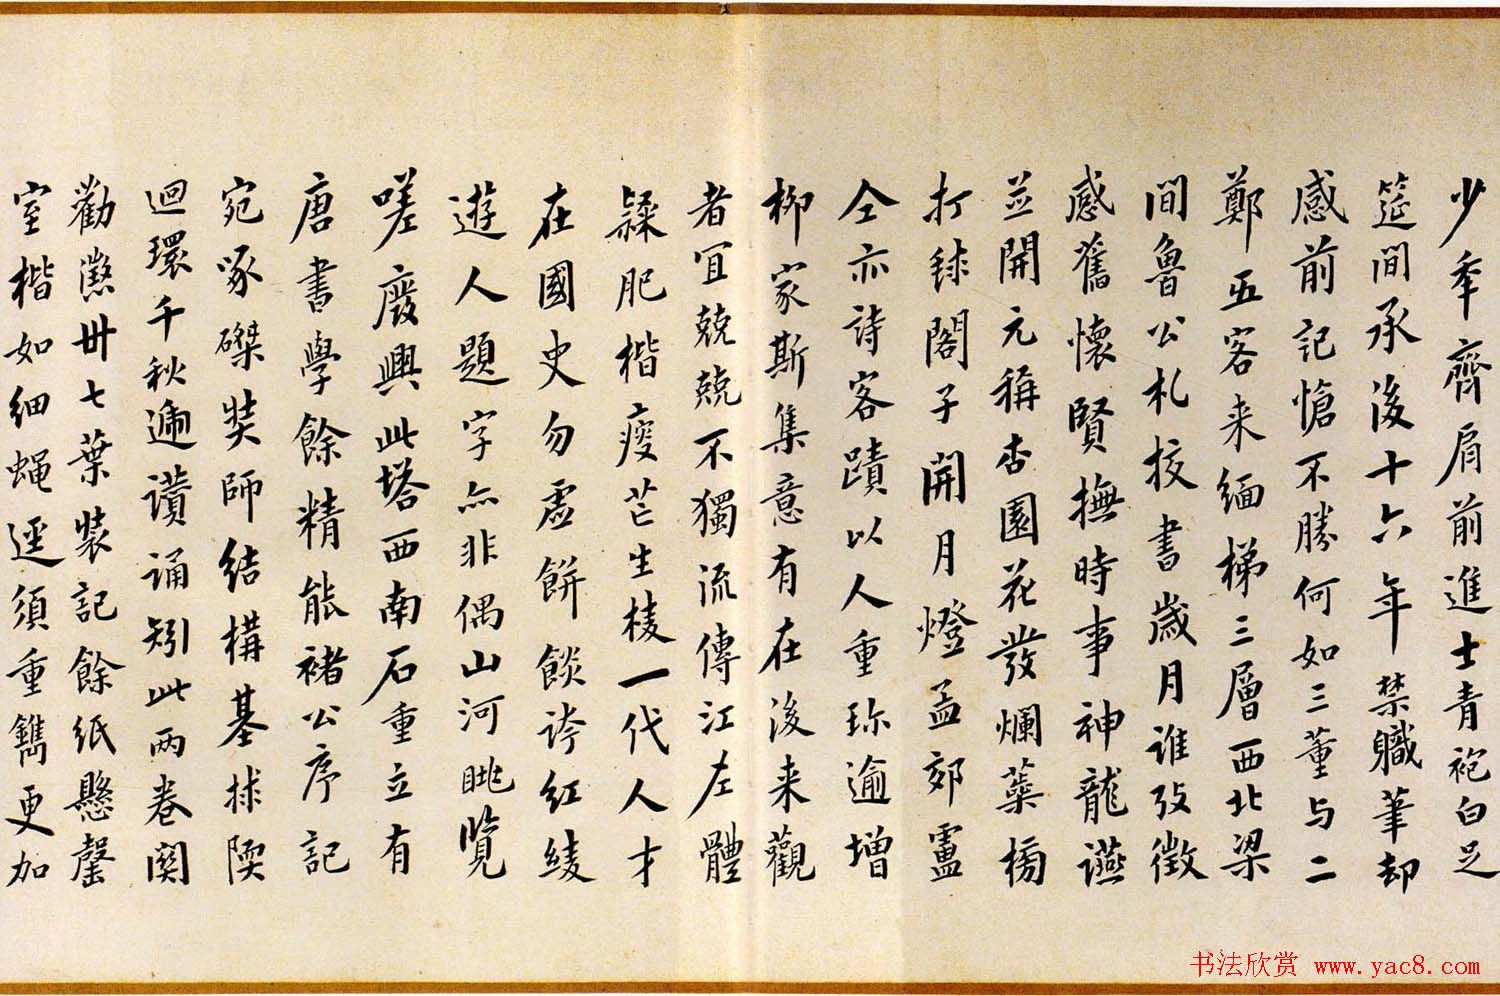 少年齊肩前進士青袍白足
筵間承後十六年禁職筆却
感前記愴不勝何如三董与二
鄭五客来緬梯三層西北梁
間魯公札挍書歲月誰攷徵
感舊懷賢撫時事神龍讌
並開元稱杏園花發爛蘂榜
打毬閣子開月燈孟郊盧
仝亦詩客蹟以人重珎逾增
柳家斯集意有在後来觀
者宜兢兢不獨流傳江左體
肥楷瘦芒生棱一代人才
在國史勿虛餅餤誇紅綾
遊人題字亦非偶山河眺覽
嗟廢興此塔西南石重立有
唐書學餘精能褚公序記
宛啄磔奘師結構基捄陾
迴環千秋遞讚誦矧此兩卷関
勸懲卌七葉裝記餘紙懸罄
室楷如細蝇逕須重鐫更加
书法欣赏 www.yac8.com